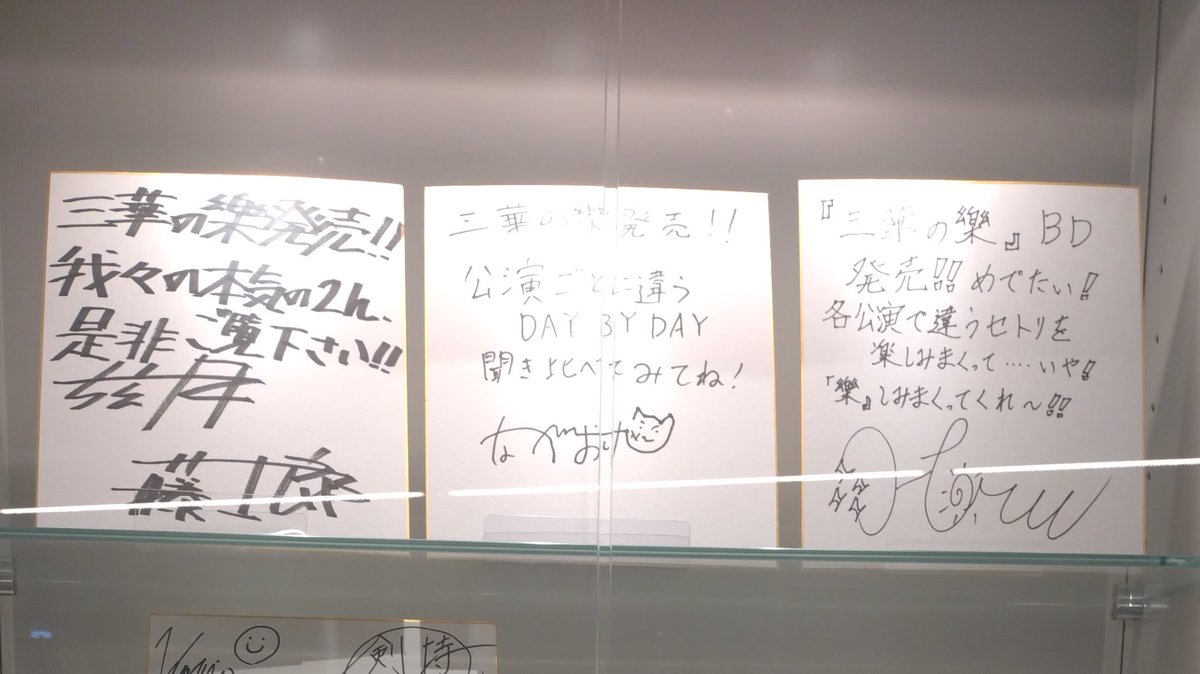 三華の樂発売!!
我々の本気の2h、
是非ご覧下さい!!
弦月
藤士郎
三華の樂発売!!
公演ごとに違う
DAY BY DAY
聞き比べてみてね!
ながおけい
『三華の樂』BD
発売!!めでたい!
各公演で違うセトリを
楽しみまくって‥‥いや!
『樂』しみまくってくれ〜!!
剣持